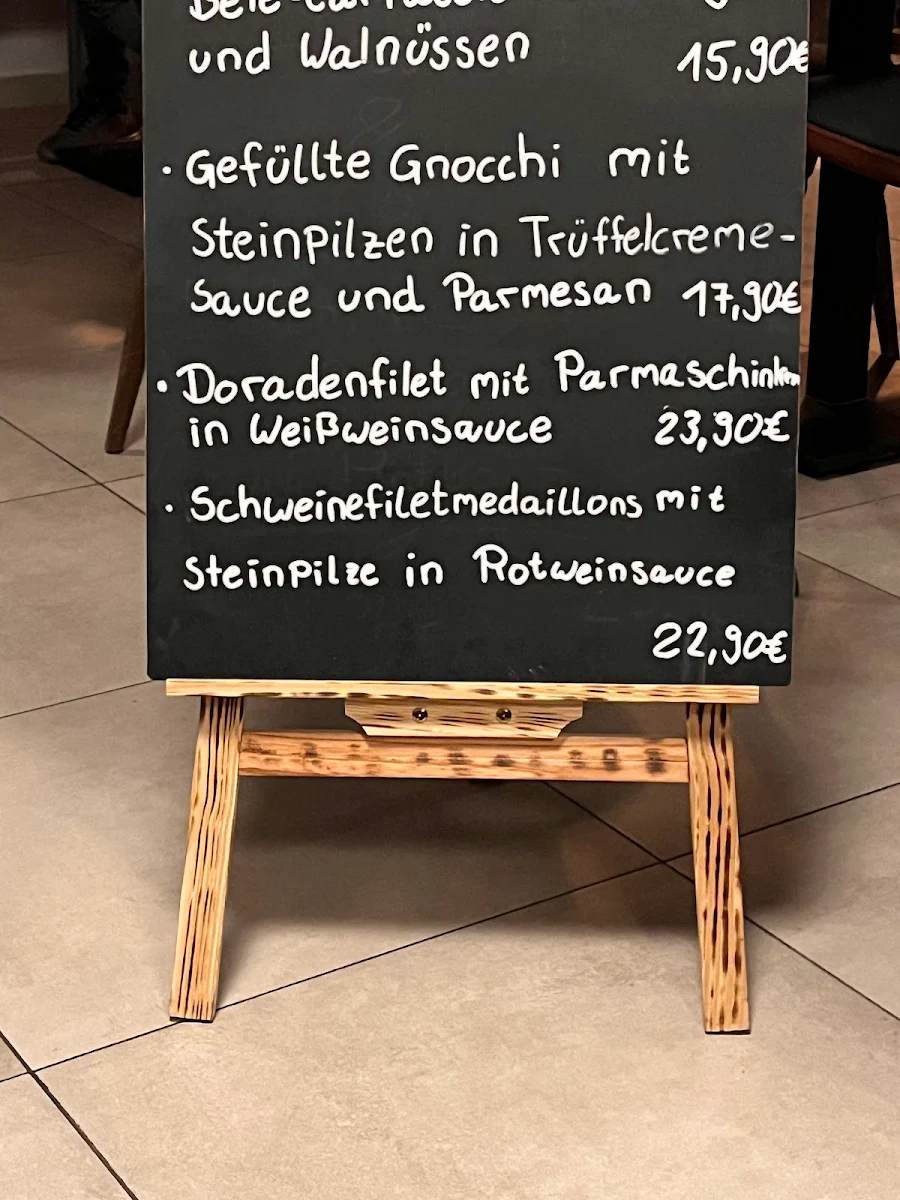 und Walnüssen 15,90€
· Gefüllte Gnocchi mit
Steinpilzen in Trüffelcreme-
sauce und Parmesan 17,90€
· Doradenfilet mit Parmaschinken
in Weißweinsauce 23,90€
· Schweinefiletmedaillons mit
Steinpilze in Rotweinsauce
22,90€